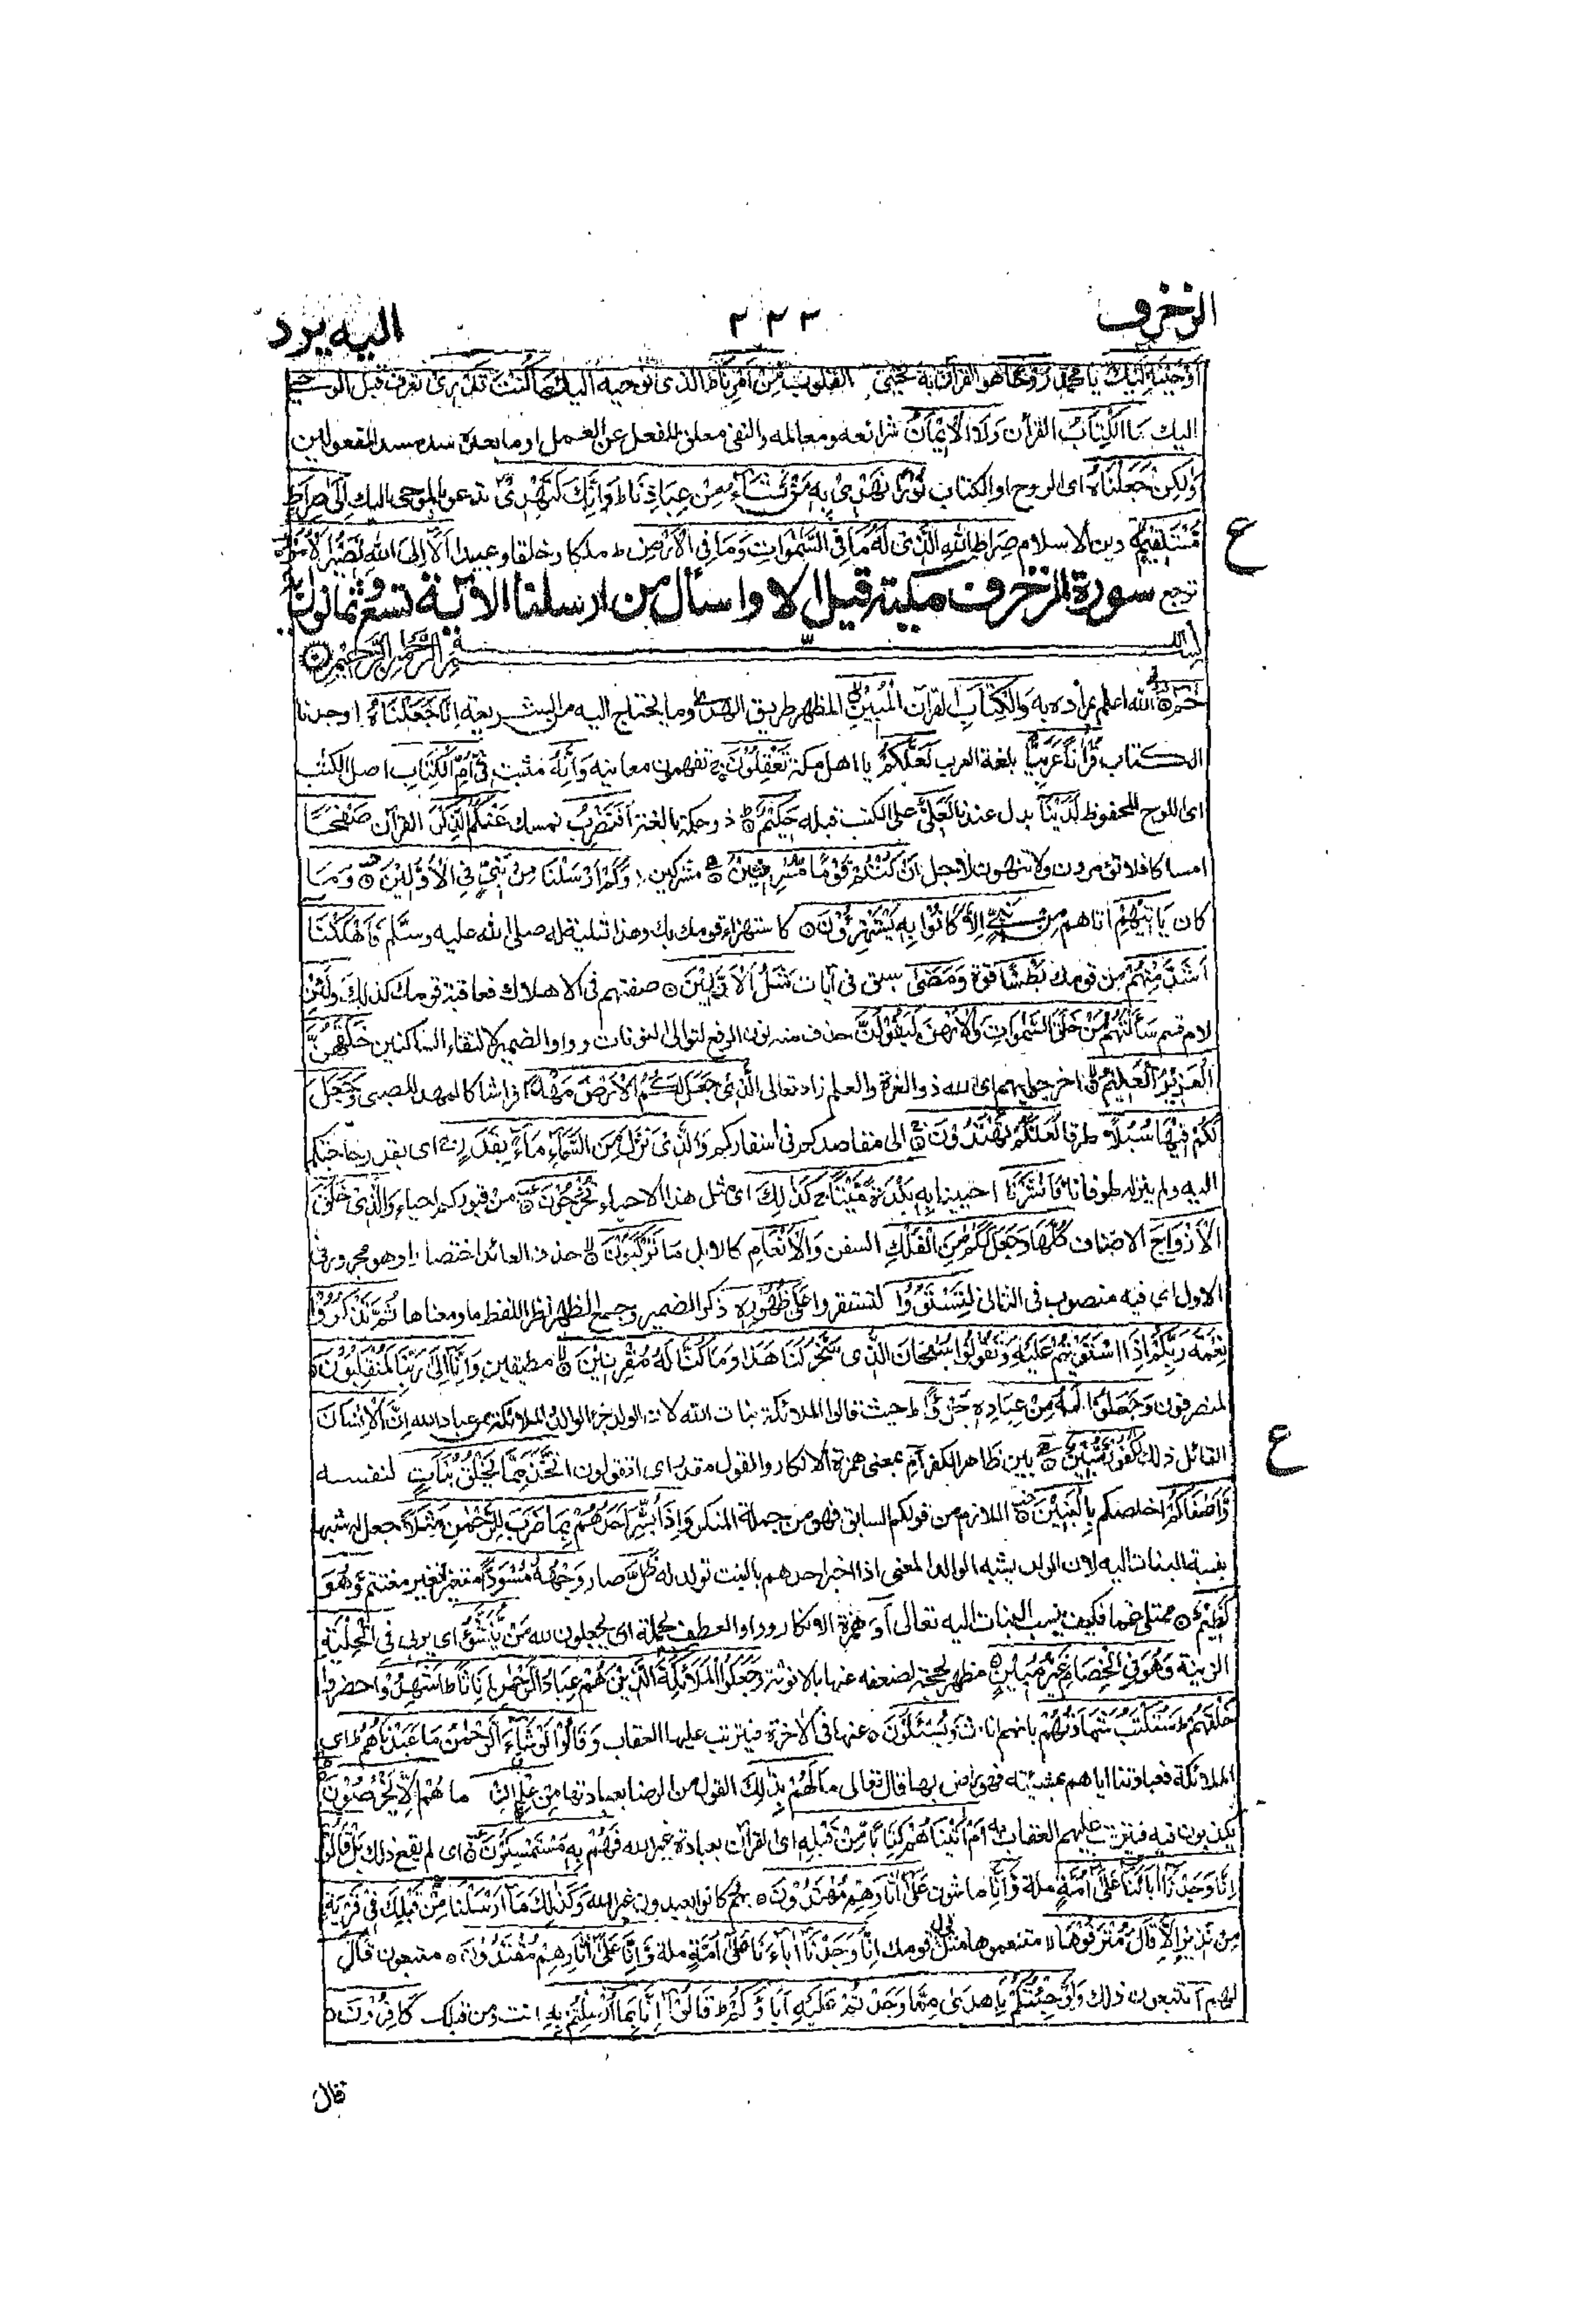 الزخرف ٢٢٣ اليه يرد
أَوْحَيْنَا إِلَيْكَ يا محمد رُوْحًا هو القرآن به تحيى القلوب مِّنْ أَمْرِنَا ط الذى نوحيه اليك مَا كُنْتَ تَدْرِىْ تعرف قبل الوحى
اليك مَا الْكِتَابُ القرآن وَلَا الْإِيْمَانُ شرائعه ومعالمه والنفى معلق للفعل عن العمل او ما بعده سد مسد المفعولين
وَلٰكِنْ جَعَلْنَاهُ اى الروح او الكتاب نُوْرًا نَّهْدِىْ بِهٖ مَنْ نَّشَآءُ مِنْ عِبَادِنَا ط وَإِنَّكَ لَتَهْدِىْ تدعو بالموحى اليك إِلٰى صِرَاطٍ
مُّسْتَقِيْمٍ دين الاسلام صِرَاطِ اللّٰهِ الَّذِىْ لَهٗ مَا فِى السَّمٰوَاتِ وَمَا فِى الْأَرْضِ ط ملكا وخلقا وعبيدا أَلَا إِلَى اللّٰهِ تَصِيْرُ الْأُمُوْرُ
ع
ترجع سورة الزخرف مكية قيل الا واسأل من ارسلنا الآية تسع وثمانون آية
بِسْمِ اللّٰهِ الرَّحْمٰنِ الرَّحِيْمِ
حٰمٓ الله اعلم بمراده به وَالْكِتَابِ القرآن الْمُبِيْنِ المظهر طريق الهدى وما يحتاج اليه من الشريعة إِنَّا جَعَلْنَاهُ اوجدنا
الكتاب قُرْآنًا عَرَبِيًّا بلغة العرب لَعَلَّكُمْ يا اهل مكة تَعْقِلُوْنَ تفهمون معانيه وَإِنَّهٗ مثبت فِىْ أُمِّ الْكِتَابِ اصل الكتب
اى اللوح المحفوظ لَدَيْنَا بدل عندنا لَعَلِىٌّ على الكتب قبله حَكِيْمٌ ذو حكمة بالغة أَفَنَضْرِبُ نمسك عَنْكُمُ الذِّكْرَ القرآن صَفْحًا
امساكا فلا تؤمرون ولا تنهون لاجل أَنْ كُنْتُمْ قَوْمًا مُّسْرِفِيْنَ مشركين وَكَمْ أَرْسَلْنَا مِنْ نَّبِىٍّ فِى الْأَوَّلِيْنَ وَمَا
كان يَأْتِيْهِمْ اتاهم مِّنْ نَّبِىٍّ إِلَّا كَانُوْا بِهٖ يَسْتَهْزِءُوْنَ كاستهزاء قومك بك وهذا تسلية له صلى الله عليه وسلم فَأَهْلَكْنَا
أَشَدَّ مِنْهُمْ من قومك بَطْشًا قوة وَمَضٰى سبق فى آيات مَثَلُ الْأَوَّلِيْنَ صفتهم فى الاهلاك فعاقبة قومك كذلك وَلَئِنْ
لام قسم سَأَلْتَهُمْ مَّنْ خَلَقَ السَّمٰوَاتِ وَالْأَرْضَ لَيَقُوْلُنَّ حذف منه نون الرفع لتوالى النونات وواو الضمير لالتقاء الساكنين خَلَقَهُنَّ
الْعَزِيْزُ الْعَلِيْمُ اخر جوابهم اى الله ذو العزة والعلم زاد تعالى الَّذِىْ جَعَلَ لَكُمُ الْأَرْضَ مَهْدًا فراشا كالمهد للصبى وَجَعَلَ
لَكُمْ فِيْهَا سُبُلًا طرقا لَعَلَّكُمْ تَهْتَدُوْنَ الى مقاصدكم فى اسفاركم وَالَّذِىْ نَزَّلَ مِنَ السَّمَآءِ مَآءً بِقَدَرٍ اى بقدر حاجتكم
اليه ولم ينزله طوفانا فَأَنْشَرْنَا احيينا بِهٖ بَلْدَةً مَّيْتًا كَذٰلِكَ اى مثل هذا الاحياء تُخْرَجُوْنَ من قبوركم احياء وَالَّذِىْ خَلَقَ
الْأَزْوَاجَ الاصناف كُلَّهَا وَجَعَلَ لَكُمْ مِّنَ الْفُلْكِ السفن وَالْأَنْعَامِ كالابل مَا تَرْكَبُوْنَ حذف العائد اختصارا وهو مجرور فى
الاول اى فيه منصوب فى الثانى لِتَسْتَوُوْا لتستقروا عَلٰى ظُهُوْرِهٖ ذكر الضمير وجمع الظهر نظرا للفظ ما ومعناها ثُمَّ تَذْكُرُوْا
نِعْمَةَ رَبِّكُمْ إِذَا اسْتَوَيْتُمْ عَلَيْهِ وَتَقُوْلُوْا سُبْحَانَ الَّذِىْ سَخَّرَ لَنَا هٰذَا وَمَا كُنَّا لَهٗ مُقْرِنِيْنَ مطيقين وَإِنَّا إِلٰى رَبِّنَا لَمُنْقَلِبُوْنَ
لمنصرفون وَجَعَلُوْا لَهٗ مِنْ عِبَادِهٖ جُزْءًا ط حيث قالوا الملائكة بنات الله لان الولد جزء الوالد والملائكة من عباد الله إِنَّ الْإِنْسَانَ
القائل ذلك لَكَفُوْرٌ مُّبِيْنٌ بين ظاهر الكفر أَمِ بمعنى همزة الانكار والقول مقدر اى اتقولون اتَّخَذَ مِمَّا يَخْلُقُ بَنَاتٍ لنفسه
ع
وَّأَصْفَاكُمْ اخلصكم بِالْبَنِيْنَ اللازم من قولكم السابق فهو من جملة المنكر وَإِذَا بُشِّرَ أَحَدُهُمْ بِمَا ضَرَبَ لِلرَّحْمٰنِ مَثَلًا جعل له شبها
بنسبة البنات اليه لان الولد يشبه الوالد المعنى اذا اخبر احدهم بالبنت تولد له ظَلَّ صار وَجْهُهٗ مُسْوَدًّا متغيرا تغير مغتم وَّهُوَ
كَظِيْمٌ ممتلئ غما فكيف ينسب البنات اليه تعالى أَوَ همزة الانكار وواو العطف بجملة اى يجعلون لله مَنْ يُّنَشَّؤُا اى يربى فِى الْحِلْيَةِ
الزينة وَهُوَ فِى الْخِصَامِ غَيْرُ مُبِيْنٍ مظهر الحجة لضعفه عنها بالانوثة وَجَعَلُوا الْمَلَائِكَةَ الَّذِيْنَ هُمْ عِبَادُ الرَّحْمٰنِ إِنَاثًا ط أَشَهِدُوْا احضروا
خَلْقَهُمْ ط سَتُكْتَبُ شَهَادَتُهُمْ بانهم اناث وَيُسْئَلُوْنَ عنها فى الآخرة فيترتب عليها العقاب وَقَالُوْا لَوْ شَآءَ الرَّحْمٰنُ مَا عَبَدْنَاهُمْ ط اى
الملائكة فعبادتنا اياهم بمشيئته فهو راض بها قال تعالى مَا لَهُمْ بِذٰلِكَ القول من الرضا بعبادتها مِنْ عِلْمٍ إِنْ ما هُمْ إِلَّا يَخْرُصُوْنَ
يكذبون فيه فيترتب عليهم العقاب به أَمْ آتَيْنَاهُمْ كِتَابًا مِّنْ قَبْلِهٖ اى القرآن بعبادة غير الله فَهُمْ بِهٖ مُسْتَمْسِكُوْنَ اى لم يقع ذلك بَلْ قَالُوْا
إِنَّا وَجَدْنَا آبَآءَنَا عَلٰى أُمَّةٍ ملة وَّإِنَّا ماشون عَلٰى آثَارِهِمْ مُّهْتَدُوْنَ بهم كانوا يعبدون غير الله وَكَذٰلِكَ مَا أَرْسَلْنَا مِنْ قَبْلِكَ فِىْ قَرْيَةٍ
مِنْ نَّذِيْرٍ إِلَّا قَالَ مُتْرَفُوْهَا متنعموها مثل قول قومك إِنَّا وَجَدْنَا آبَآءَنَا عَلٰى أُمَّةٍ ملة وَّإِنَّا عَلٰى آثَارِهِمْ مُّقْتَدُوْنَ متبعون قَالَ
لهم أ تتبعون ذلك وَلَوْ جِئْتُكُمْ بِأَهْدٰى مِمَّا وَجَدْتُّمْ عَلَيْهِ آبَآءَكُمْ ط قَالُوْا إِنَّا بِمَا أُرْسِلْتُمْ بِهٖ انت ومن قبلك كَافِرُوْنَ
قال